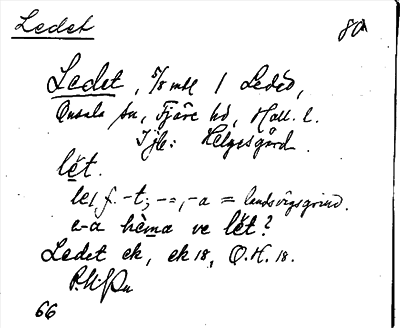 Ledet 80
Ledet, 5/8 mtl 1 Leded,
Onsala sn, Fjäre hd, Hall. l.
Tjle: Helgesgård.
lèt.
le, f. -t; -=, -a = landsvägsgrind.
e-a hèma ve lét?
Ledet ek, ek 18, O.H. 18.
66